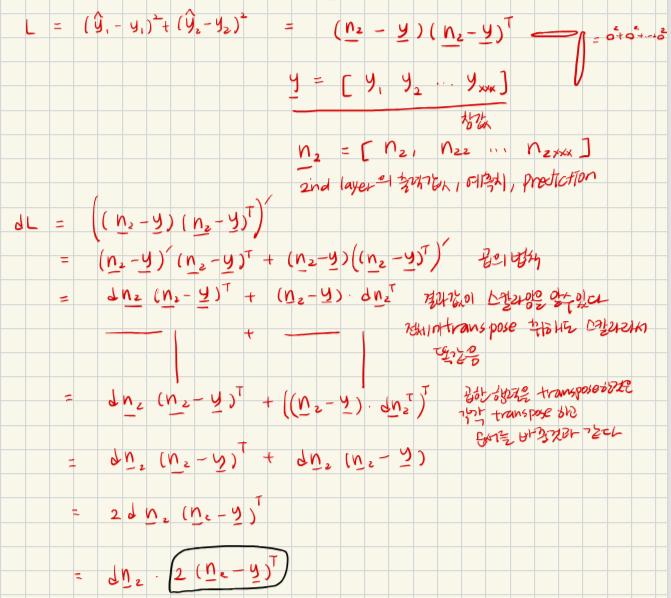 L = (ŷ₁ - y₁)² + (ŷ₂ - y₂)² = (n₂ - y)(n₂ - y)ᵀ = 0² + 0² + ... 0²
y = [ y₁ y₂ ... yₓₓₓ ]
참값
n₂ = [ n₂₁ n₂₂ ... n₂ₓₓₓ ]
2nd layer의 출력값, 예측치, prediction
dL = ((n₂ - y)(n₂ - y)ᵀ)′
= (n₂ - y)′(n₂ - y)ᵀ + (n₂ - y)((n₂ - y)ᵀ)′ 곱의 법칙
= dn₂ (n₂ - y)ᵀ + (n₂ - y) · dn₂ᵀ 결과값이 스칼라임을 알수있다
+ 전체 transpose 취해도 스칼라라서
똑같음
= dn₂ (n₂ - y)ᵀ + ((n₂ - y) · dn₂ᵀ)ᵀ 곱한 행렬을 transpose한것은
각각 transpose 하고
순서를 바꾼것과 같다
= dn₂ (n₂ - y)ᵀ + dn₂ (n₂ - y)
= 2 dn₂ (n₂ - y)ᵀ
= dn₂ · 2 (n₂ - y)ᵀ